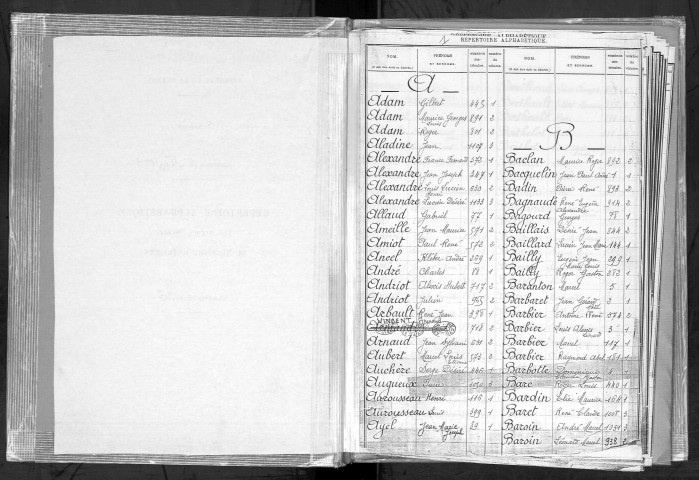 RÉPERTOIRE ALPHABÉTIQUE.
NOM. PRÉNOMS ET SURNOMS. NOM. PRÉNOMS ET SURNOMS.
A
Adam Gilbert 445 1
Adam Maurice Georges Louis 891 2
Adam Roger 301 2
Aladine Jean 1107 3
Alexandre France Fernand 372 1
Alexandre Jean Joseph 347 1
Alexandre Louis Lucien 650 2
Alexandre Lucien Désiré 1133 3
Allaud Gabriel 77 1
Ameille Jean Maurice 591 2
Amiot Paul René 572 2
Ancel Kléber André 259 1
André Charles 18 1
Andriot Alexis Hubert 717 2
Andriot Julien 955 2
Arbault René Jean 398 1
VINCENT 718 2
Arnaud Jean Sylvain 631 2
Aubert Marcel Louis 573 2
Auchère Serge Désiré 446 1
Augueux
Aurousseau Henri 116 1
Aurousseau Louis 399 1
Ayel Jean Marie Joseph 29 1
B
Baclan Maurice Roger 892 2
Bacquelin Jean Paul Aimé 1 1
Badin Pierre René 893 2
Bagnaude René Eugène 914 2
Bagourd Alexandre Georges 78 1
Baillais Désiré Jean 544 2
Baillard Lucien Jean Marie 144 1
Bailly Eugène Jean 219 1
Bailly Roger Gaston 282 1
Baranton Marcel 5 1
Barbaret Jean 2 1
Barbier Antoine René 574 2
Barbier Louis Alexis 3 1
Barbier Marcel 117 1
Barbier Raymond Abel 181 1
Barbotte Dominique 4 1
Barc Roger Louis 440 1
Bardin Elie Maurice 164 1
Baret René Claude 1005 3
Baroin André Marcel 1091 3
Baroin Léonard Marcel 938 2